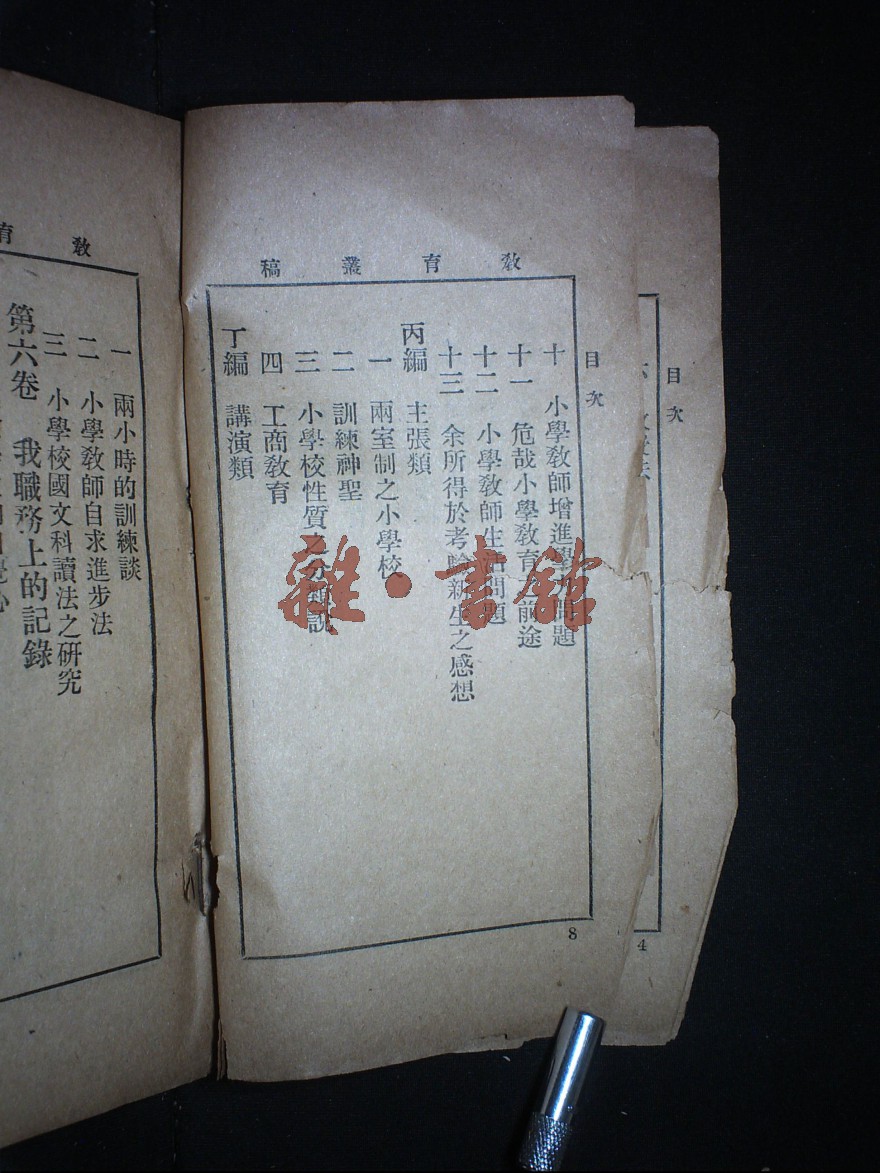 目次
教育叢稿
十 小學教師增進學力問題
十一 危哉小學教育 前途
十二 小學教師生活問題
十三 余所得於考驗新生之感想
丙編 主張類
一 兩室制之小學校
二 訓練神聖
三 小學校性質之分類說
四 工商教育
丁編 講演類
8
教育
一 兩小時的訓練談
二 小學教師自求進步法
三 小學校國文科讀法之研究
第六卷 我職務上的記錄
目次
4
雜·書館